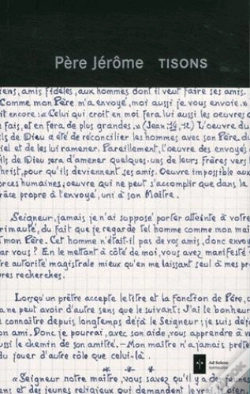 Père Jérôme TISONS
sens, amis fidèles, aux hommes dont il veut faire ses amis.
Comme mon Père m'a envoyé, moi aussi je vous envoie.
it encore : « Celui qui croit en moi fera lui aussi les oeuvres
fais, et en fera de plus grandes. » (Jean L'oeuvre du
ls de Dieu a été de réconcilier les hommes avec son Père du
iel et de les lui ramener. Pareillement, l'oeuvre des envoyés
fils de Dieu sera d'amener quelques-uns de leurs frères vers
hrist, pour qu'ils deviennent ses amis. Oeuvre impossible aux
orces humaines, oeuvre qui ne peut s'accomplir que dans la
râce propre à l'envoyé, uni à son Maître.
Seigneur, jamais je n'ai supposé porter atteinte à votre
rimauté, du fait que je regarde tel homme comme mon maî
t mon Père. Cet homme n'était-il pas de vos amis, donc envoyé
ar vous ? En le mettant à côté de moi, vous avez manifesté
tre autorité magistrale mieux qu'en me laissant seul à mes p
res recherches.
Lorsqu'un prêtre accepte le titre et la fonction de Père,
a ne peut avoir d'autre sens que le suivant : J'ai le bonheur
e connaître depuis longtemps déjà le Seigneur ; je suis deve
on ami. Donc je pourrai, avec son aide, vous apprendre à v
ussi le chemin de son amitié. — Mon maître n'a jamais préten
du jouer d'autre rôle que celui-là.
« Seigneur notre maître, vous savez qu'il y a de jeunes
ens et des étudiants qui
Ad Solem